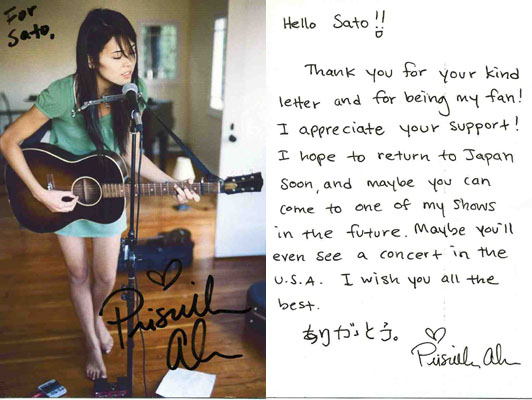 For
Sato.
Priscilla
Ahn
Hello Sato!!
Thank you for your kind
letter and for being my fan!
I appreciate your support!
I hope to return to Japan
soon, and maybe you can
come to one of my shows
in the future. Maybe you'll
even see a concert in the
U.S.A. I wish you all the
best.
ありがとう。
Priscilla Ahn